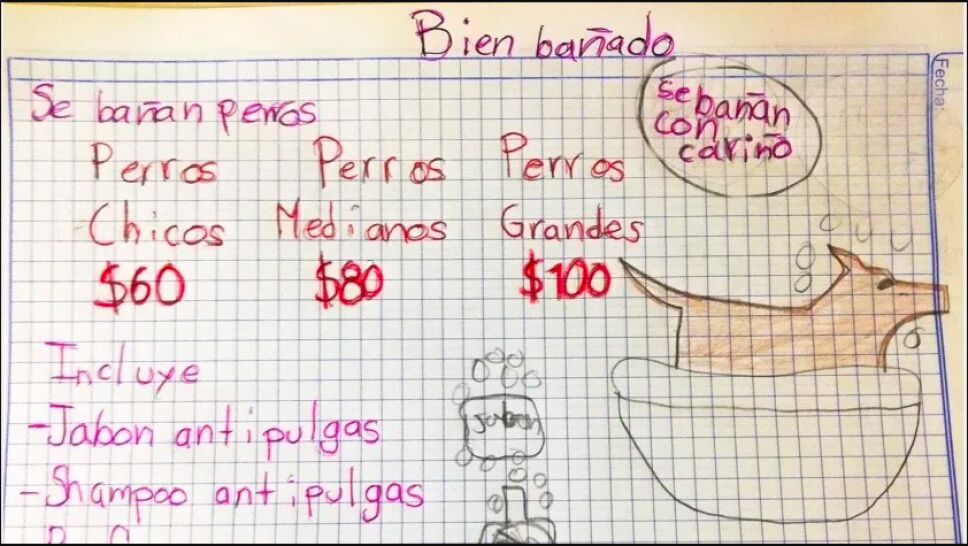 Bien bañado
Fecha:
Se bañan perros
se
bañan
con
cariño
Perros Perros Perros
Chicos Medianos Grandes
$60 $80 $100
Incluye
-Jabon antipulgas
Jabon
-Shampoo antipulgas